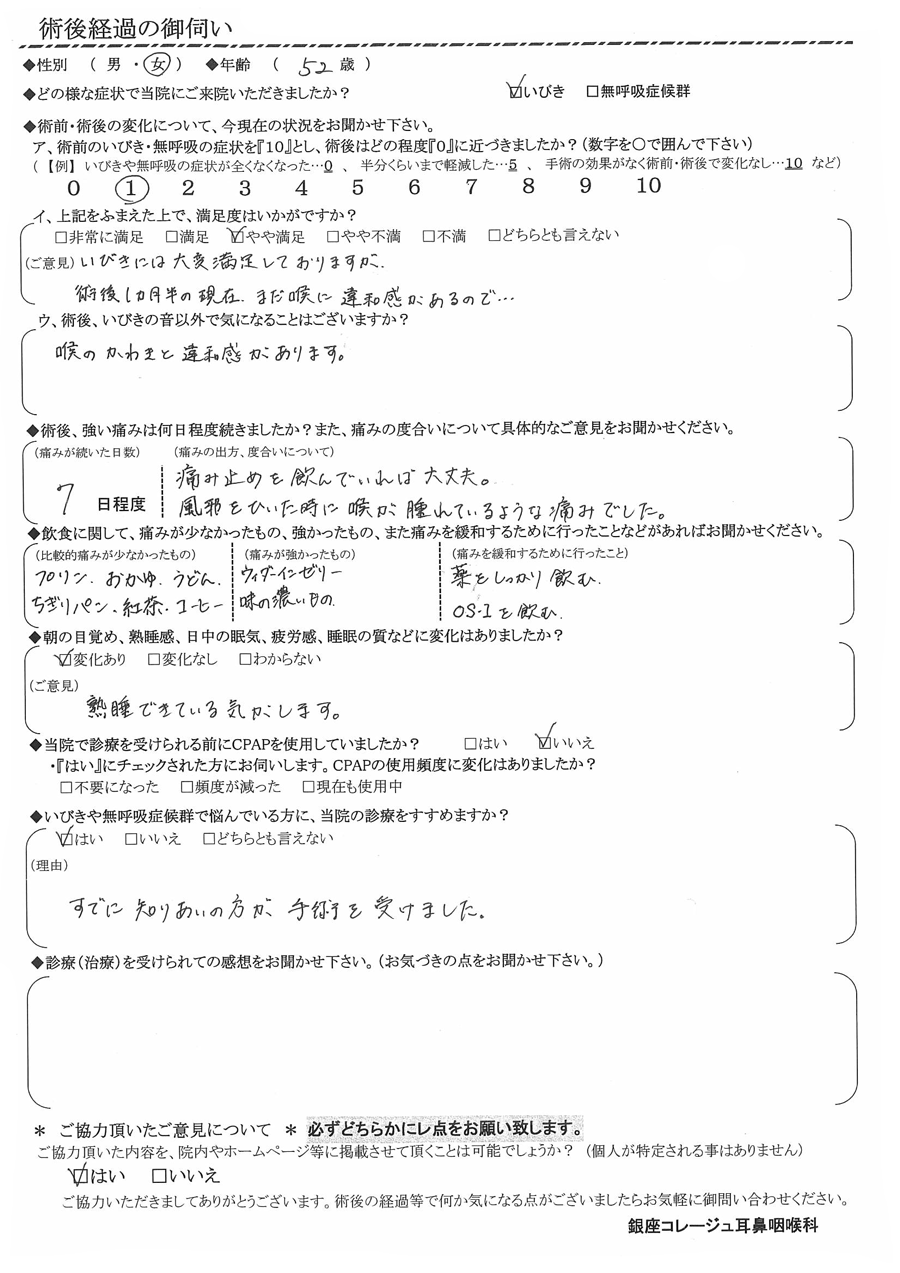 術後経過の御伺い
◆性別 ( 男 ・ 女 ) ◆年齢 ( 52 歳 )
◆どの様な症状で当院にご来院いただきましたか? ☑いびき □無呼吸症候群
◆術前・術後の変化について、今現在の状況をお聞かせ下さい。
ア、術前のいびき・無呼吸の症状を『10』とし、術後はどの程度『0』に近づきましたか?(数字を〇で囲んで下さい)
(【例】いびきや無呼吸の症状が全くなくなった…0 、 半分くらいまで軽減した…5 、 手術の効果がなく術前・術後で変化なし…10 など)
0 1 2 3 4 5 6 7 8 9 10
イ、上記をふまえた上で、満足度はいかがですか?
□非常に満足 □満足 ☑やや満足 □やや不満 □不満 □どちらとも言えない
(ご意見) いびきには大変満足しておりますが、
術後1カ月半の現在、まだ喉に違和感があるので…
ウ、術後、いびきの音以外で気になることはございますか?
喉のかわきと違和感があります。
◆術後、強い痛みは何日程度続きましたか?また、痛みの度合いについて具体的なご意見をお聞かせください。
(痛みが続いた日数) (痛みの出方、度合いについて)
痛み止めを飲んでいれば大丈夫。
7 日程度 風邪をひいた時に喉が腫れているような痛みでした。
◆飲食に関して、痛みが少なかったもの、強かったもの、また痛みを緩和するために行ったことなどがあればお聞かせください。
(比較的痛みが少なかったもの) (痛みが強かったもの) (痛みを緩和するために行ったこと)
プリン、おかゆ、うどん、 ウィダーインゼリー 薬をしっかり飲む、
ちぎりパン、紅茶、コーヒー 味の濃いもの OS-1を飲む、
◆朝の目覚め、熟睡感、日中の眠気、疲労感、睡眠の質などに変化はありましたか?
☑変化あり □変化なし □わからない
(ご意見)
熟睡できている気がします。
◆当院で診療を受けられる前にCPAPを使用していましたか? □はい ☑いいえ
・『はい』にチェックされた方にお伺いします。CPAPの使用頻度に変化はありましたか?
□不要になった □頻度が減った □現在も使用中
◆いびきや無呼吸症候群で悩んでいる方に、当院の診療をすすめますか?
☑はい □いいえ □どちらとも言えない
(理由)
すでに知りあいの方が、手術を受けました。
◆診療(治療)を受けられての感想をお聞かせ下さい。(お気づきの点をお聞かせ下さい。)
＊ ご協力頂いたご意見について ＊ 必ずどちらかにレ点をお願い致します。
ご協力頂いた内容を、院内やホームページ等に掲載させて頂くことは可能でしょうか? (個人が特定される事はありません)
☑はい □いいえ
ご協力いただきましてありがとうございます。術後の経過等で何か気になる点がございましたらお気軽に御問い合わせください。
銀座コレージュ耳鼻咽喉科